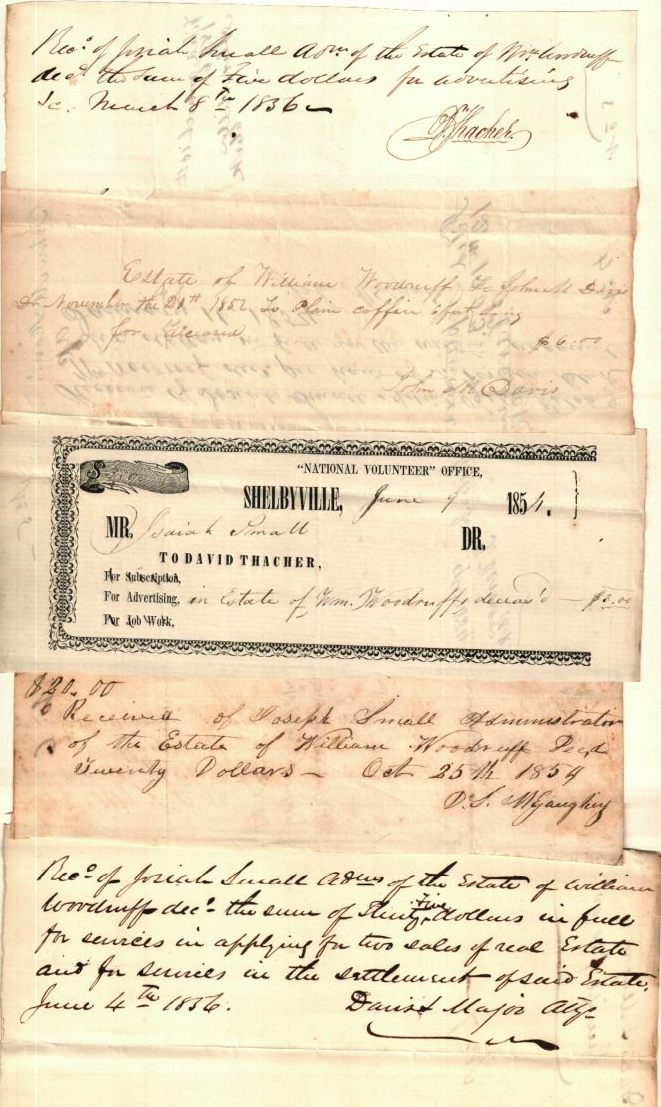 Recd of Josiah Small Adm of the Estate of Wm Woodruff
decd the sum of Five dollars for advertising
&c. March 8th 1856
D Thacher
Estate of William Woodruff To John M Davis
Dr November the 21th 1852 To Plain coffin
for deceased $6.00
John M Davis
"NATIONAL VOLUNTEER" OFFICE,
SHELBYVILLE, June 9 1854.
MR. Isaiah Small DR.
TO DAVID THACHER,
For Subscription,
For Advertising, in Estate of Wm. Woodruff deceas'd — $3.00
For Job Work,
$20.00
Received of Joseph Small Administrator
of the Estate of William Woodruff Decd
Twenty Dollars — Oct 25th 1854
D. S. McGaughey
Recd of Josiah Small Adms of the Estate of William
Woodruff decd the sum of Thirty Five dollars in full
for services in applying for two sales of real Estate
and for services in the settlement of said Estate.
June 4th 1856. Major Atty